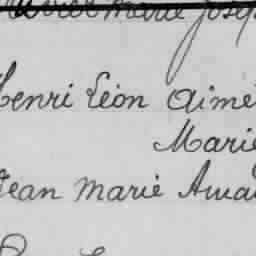 Marie Josep
Henri Léon Aimé
Marie
Jean Marie Ama